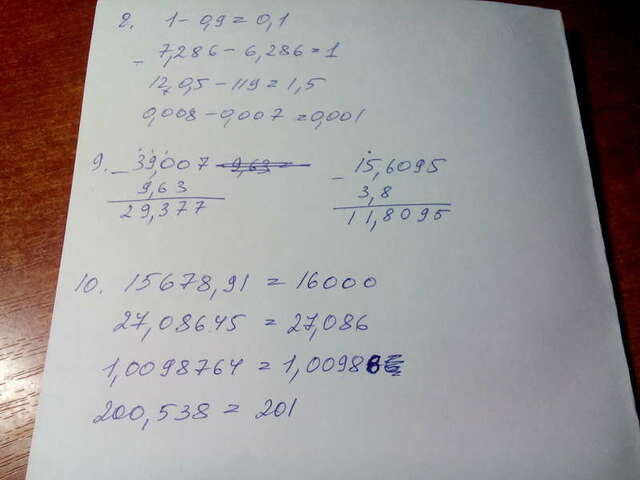 8. 1 - 0,9 = 0,1
- 7,286 - 6,286 = 1
120,5 - 119 = 1,5
0,008 - 0,007 = 0,001
9. - 39,007 - 15,6095
9,63 3,8
29,377 11,8095
10. 15678,91 = 16000
27,08645 = 27,086
1,0098764 = 1,0098
200,538 = 201